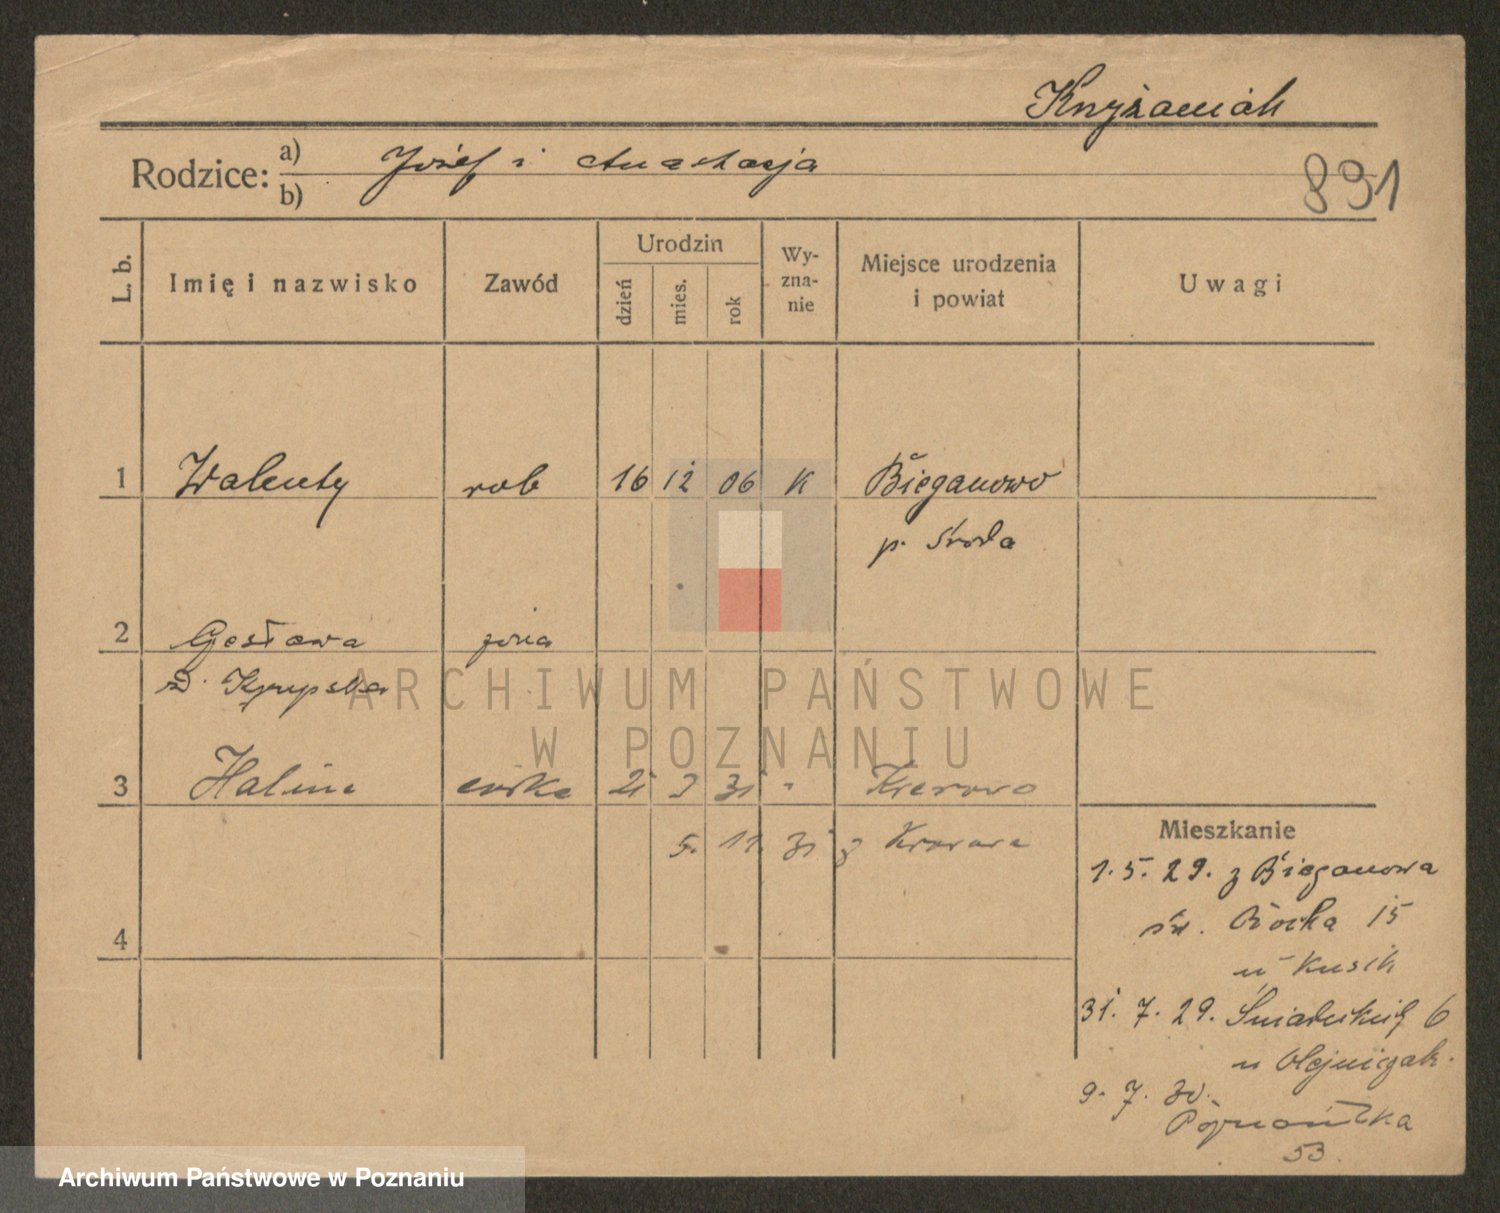 Krzyżaniak
Rodzice: a) Józef i Anastazja
b)
891
L. b. Imię i nazwisko Zawód Urodzin dzień mies. rok Wyznanie Miejsce urodzenia i powiat Uwagi
1 Walenty rob 16 12 06 K Bieganowo
p. Środa
2 Czesława żona
3 Halina córka 21 31
5. 11. 31 z
Mieszkanie
1. 5. 29. z Bieganowa
św. Rocha 15
u Kusik
4
31. 7. 29. Śniadeckich 6
u Olejniczak.
9. 7. 30.
Poznańska
53.
ARCHIWUM PAŃSTWOWE
W POZNANIU
Archiwum Państwowe w Poznaniu